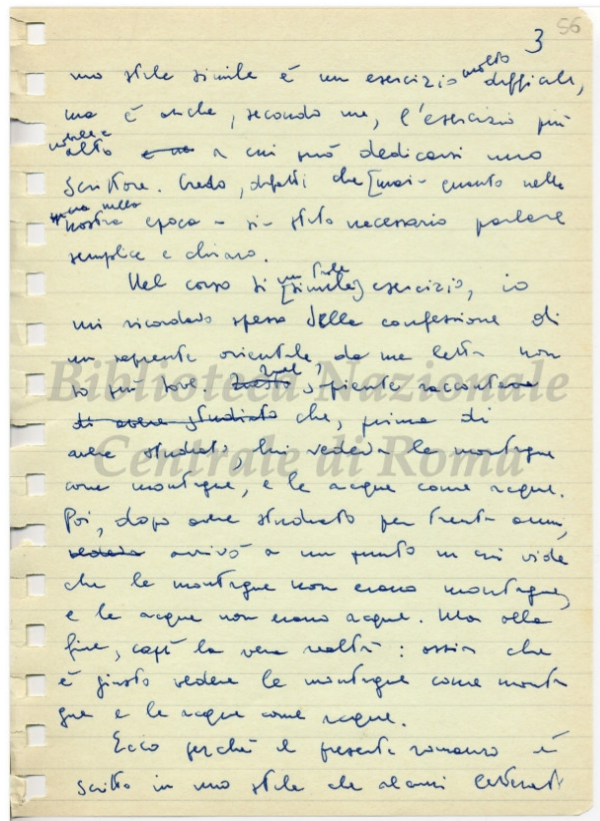 3 56
uno stile simile è un esercizio molto difficile,
ma è anche, secondo me, l'esercizio più
alto a cui può dedicarsi uno
scrittore. Credo, difatti che [mai - quanto nella
nostra epoca - sia stato necessario parlare
semplice e chiaro.
Nel corso di [simile] un tale esercizio, io
mi ricordavo spesso della confessione di
un sapiente orientale, da me letta non
so più dove. Questo Quel sapiente raccontava
di avere studiato che, prima di
avere studiato, lui vedeva le montagne
come montagne, e le acque come acque.
Poi, dopo avere studiato per trenta anni,
vedeva arrivò a un punto in cui vide
che le montagne non erano montagne,
e le acque non erano acque. Ma alla
fine, capì la vera realtà: ossia che
è giusto vedere le montagne come monta
gne e le acque come acque.
Ecco perché il presente romanzo è
scritto in uno stile che alcuni letterati
Biblioteca Nazionale
Centrale di Roma